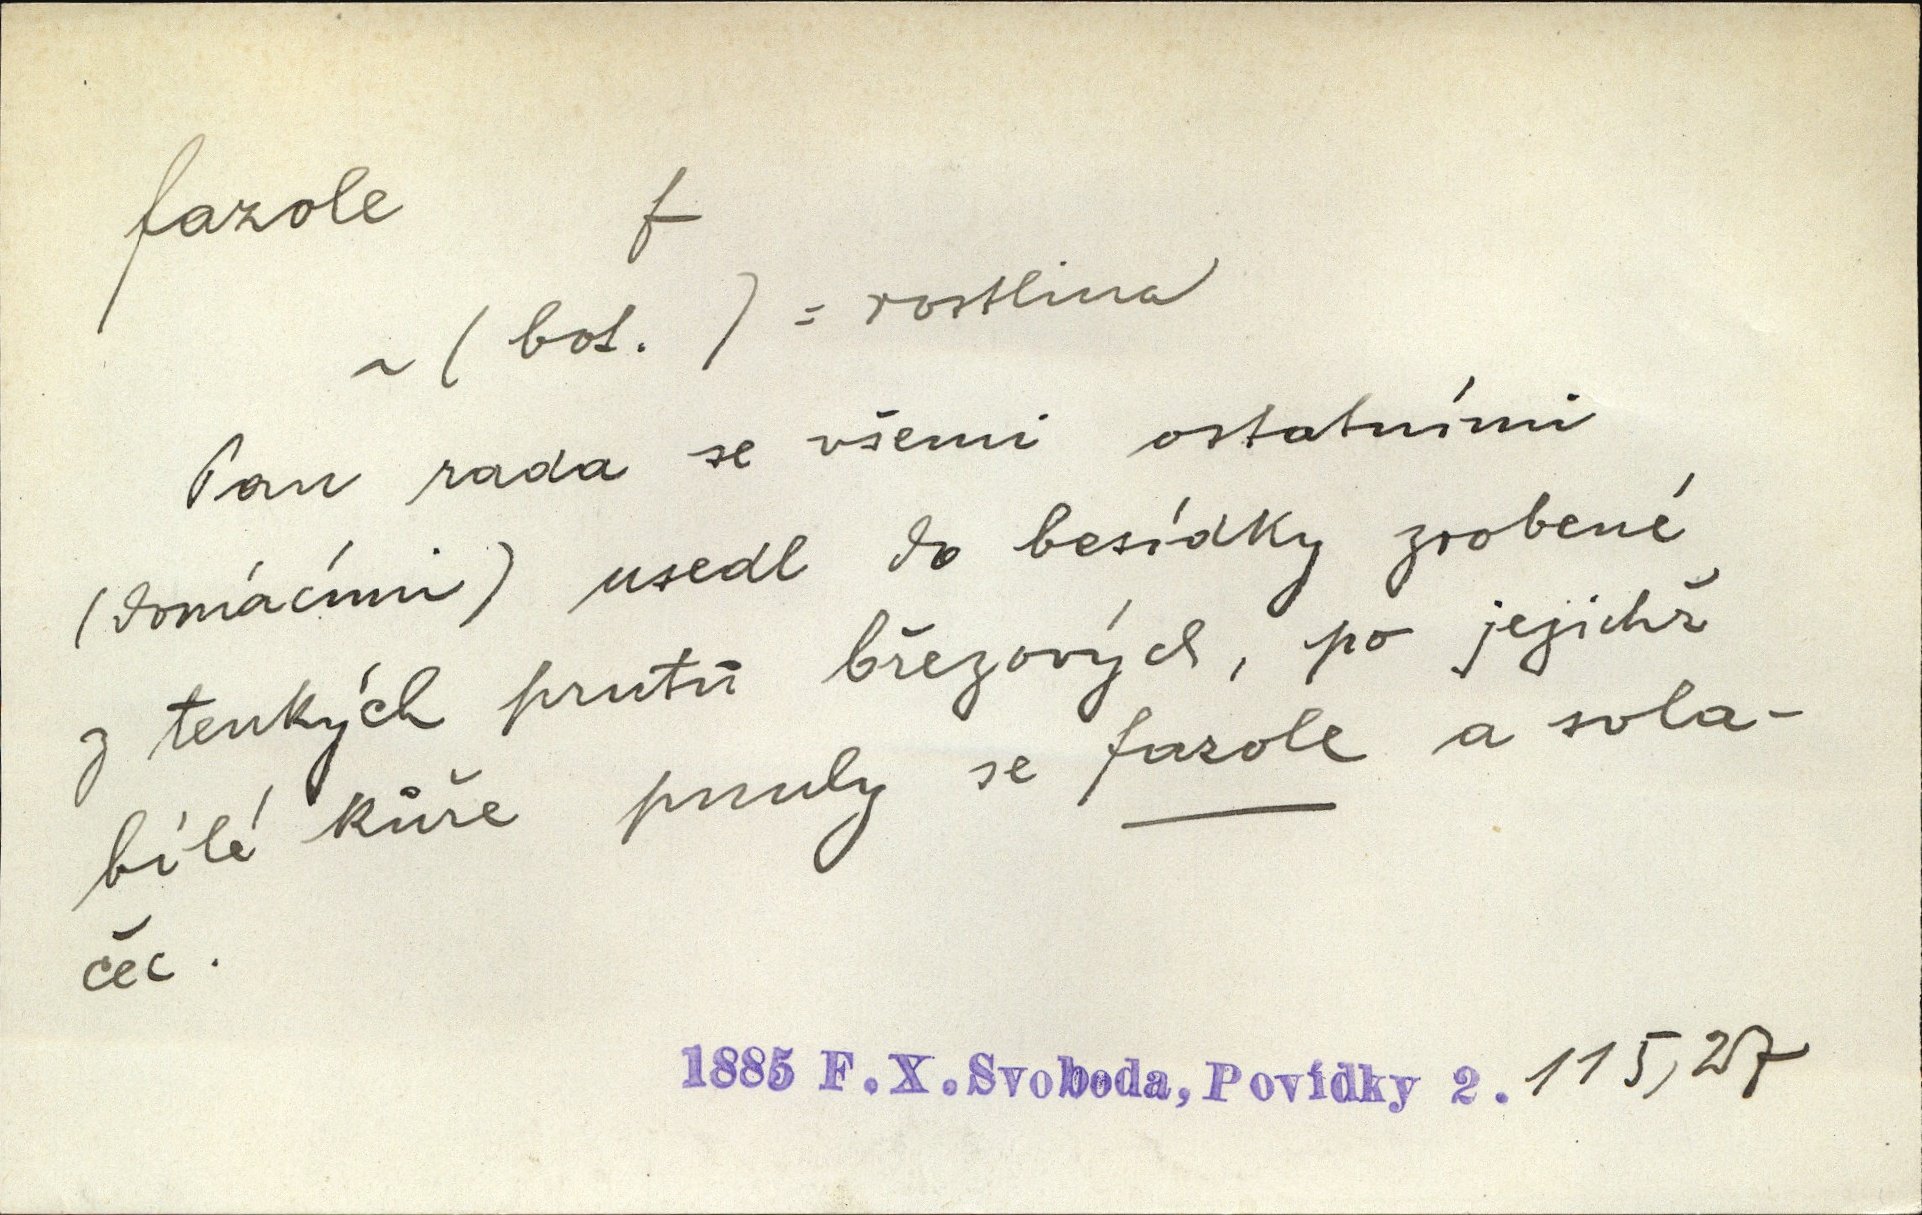 fazole f
~ (bot. ) = rostlina
Pan rada se všemi ostatními
(domácími) usedl do besídky zrobené
z tenkých prutů březových, po jejichž
bílé kůře pnuly se fazole a svla-
čec.
1885 F.X.Svoboda, Povídky 2. 115,27